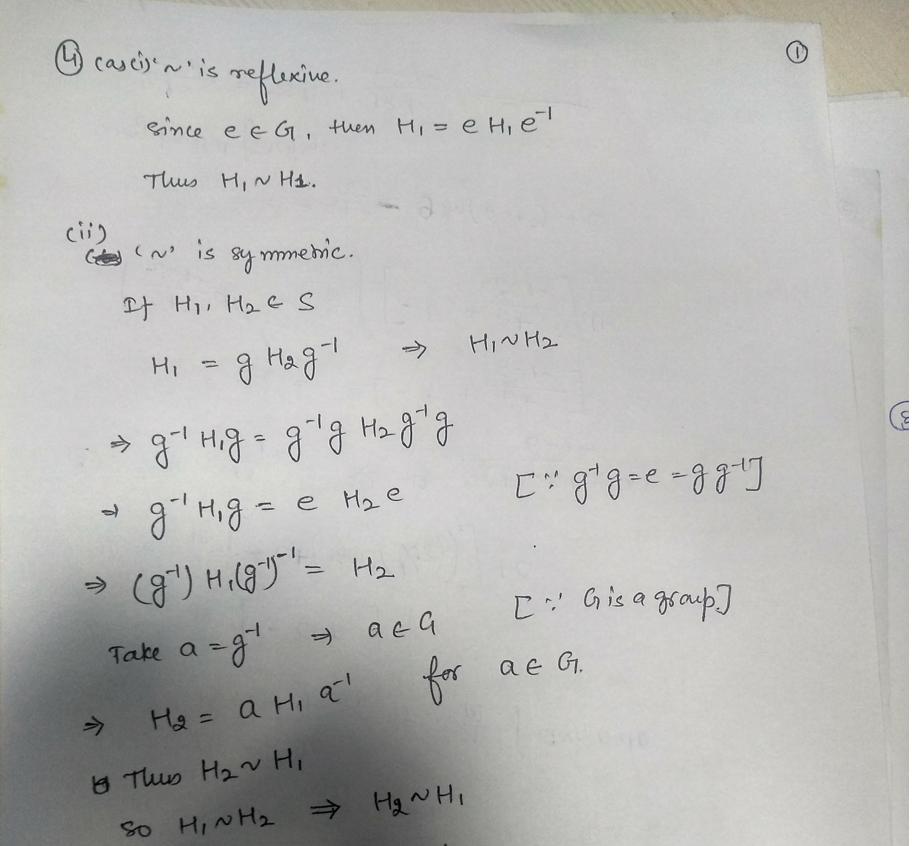 ①
④ case(i) '~' is reflexive.
since e ∈ G, then H₁ = e H₁ e⁻¹
Thus H₁ ~ H1.
(ii)
'~' is symmetric.
If H₁, H₂ ∈ S
H₁ = g H₂ g⁻¹ ⇒ H₁ ~ H₂
⇒ g⁻¹ H₁ g = g⁻¹ g H₂ g⁻¹ g
⇒ g⁻¹ H₁ g = e H₂ e [∵ g⁻¹ g = e = g g⁻¹]
⇒ (g⁻¹) H₁ (g⁻¹)⁻¹ = H₂
Take a = g⁻¹ ⇒ a ∈ G [∵ G is a group]
⇒ H₂ = a H₁ a⁻¹ for a ∈ G.
Thus H₂ ~ H₁
So H₁ ~ H₂ ⇒ H₂ ~ H₁